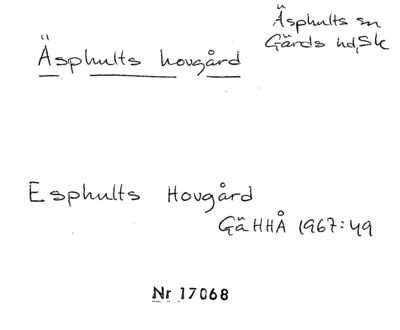 Äsphults hovgård
Äsphults sn
Gärds hd, Sk
Esphults Hovgård
GäHHÅ 1967:49
Nr 17068